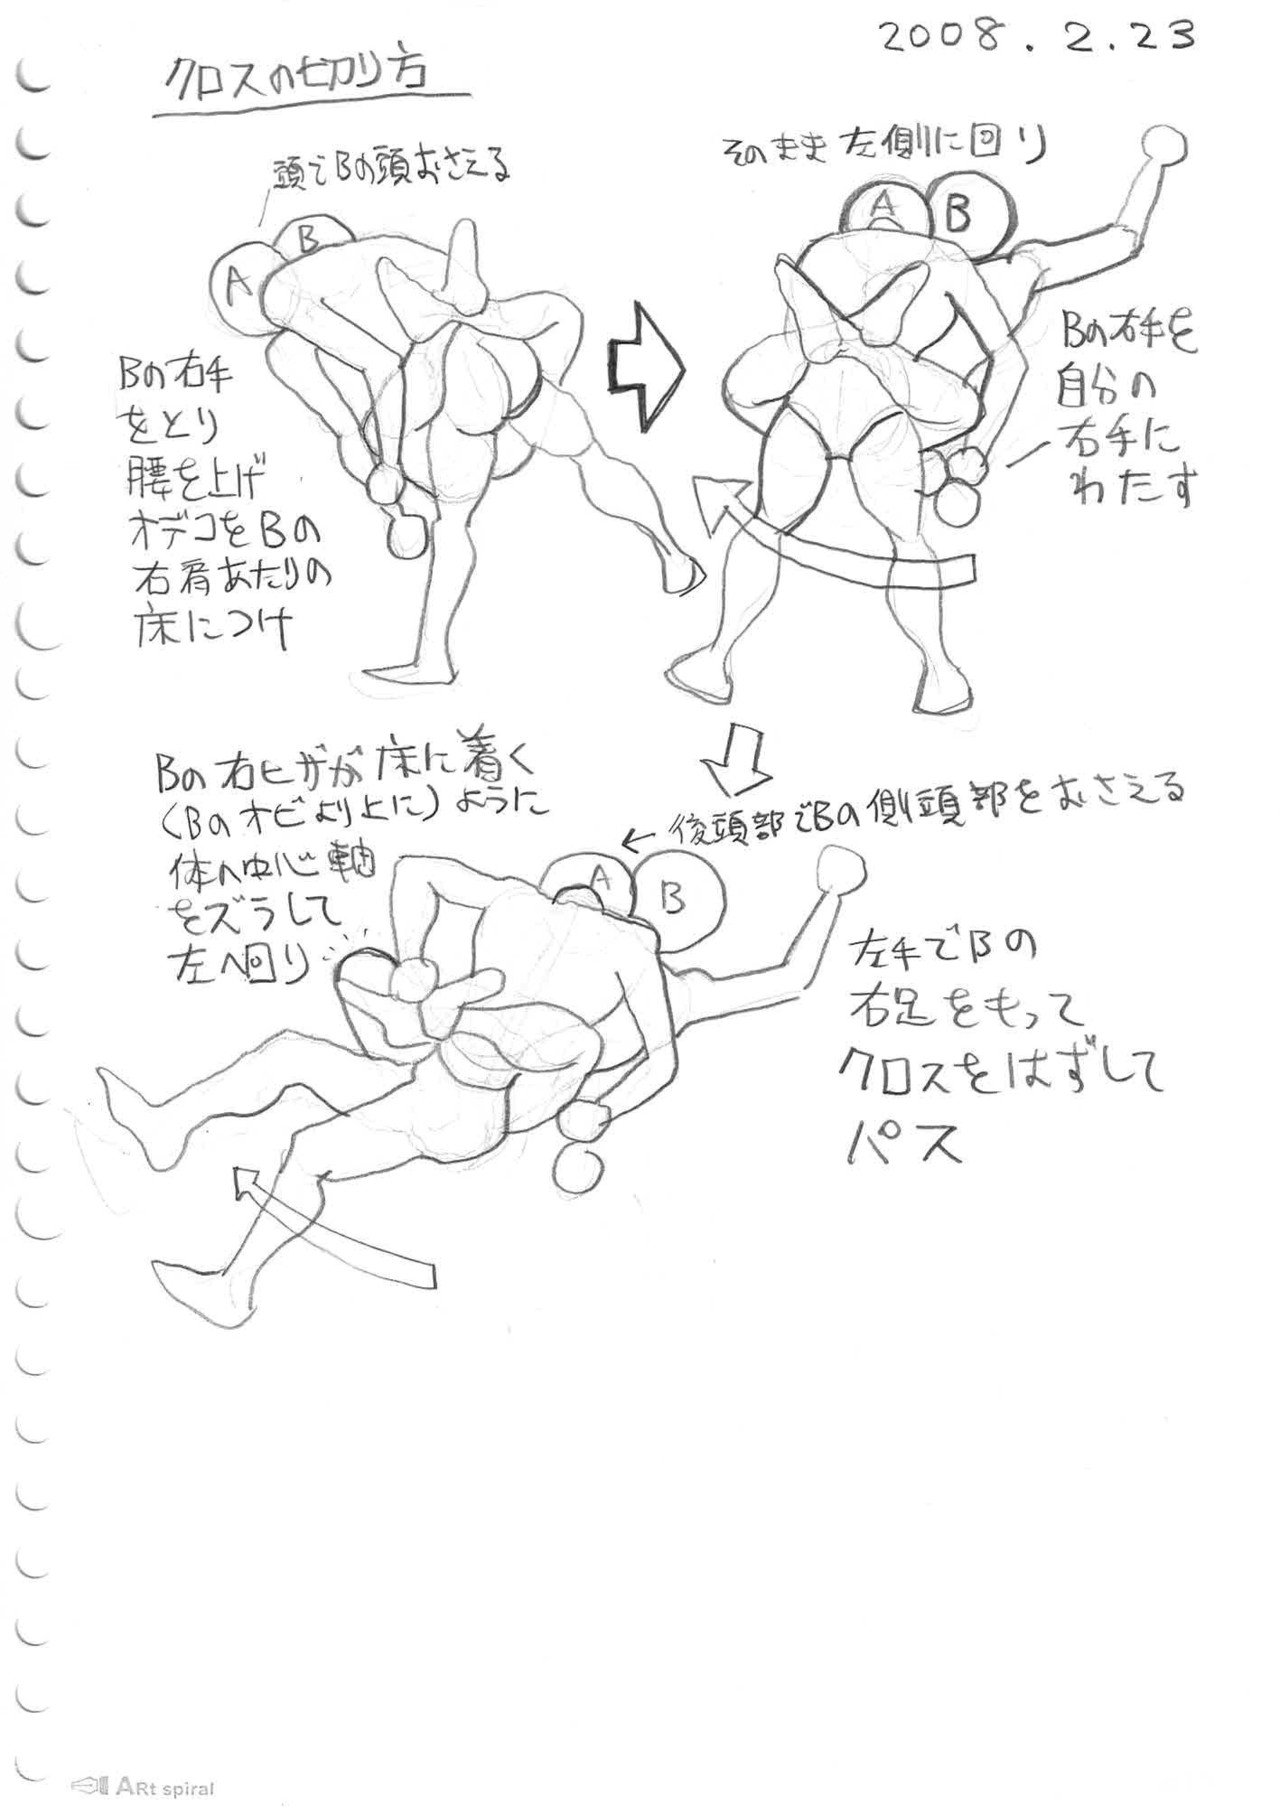 2008.2.23
クロスの切り方
頭でBの頭おさえる
B
A
Bの右手
をとり
腰を上げ
オデコをBの
右肩あたりの
床につけ
そのまま左側に回り
A
B
Bの右手を
自分の
右手に
わたす
Bの右ヒザが床に着く
(Bのオビより上に)ように
体の中心軸
をズラして
左へ回り
←後頭部でBの側頭部をおさえる
A
B
左手でBの
右足をもって
クロスをはずして
パス
ARt spiral